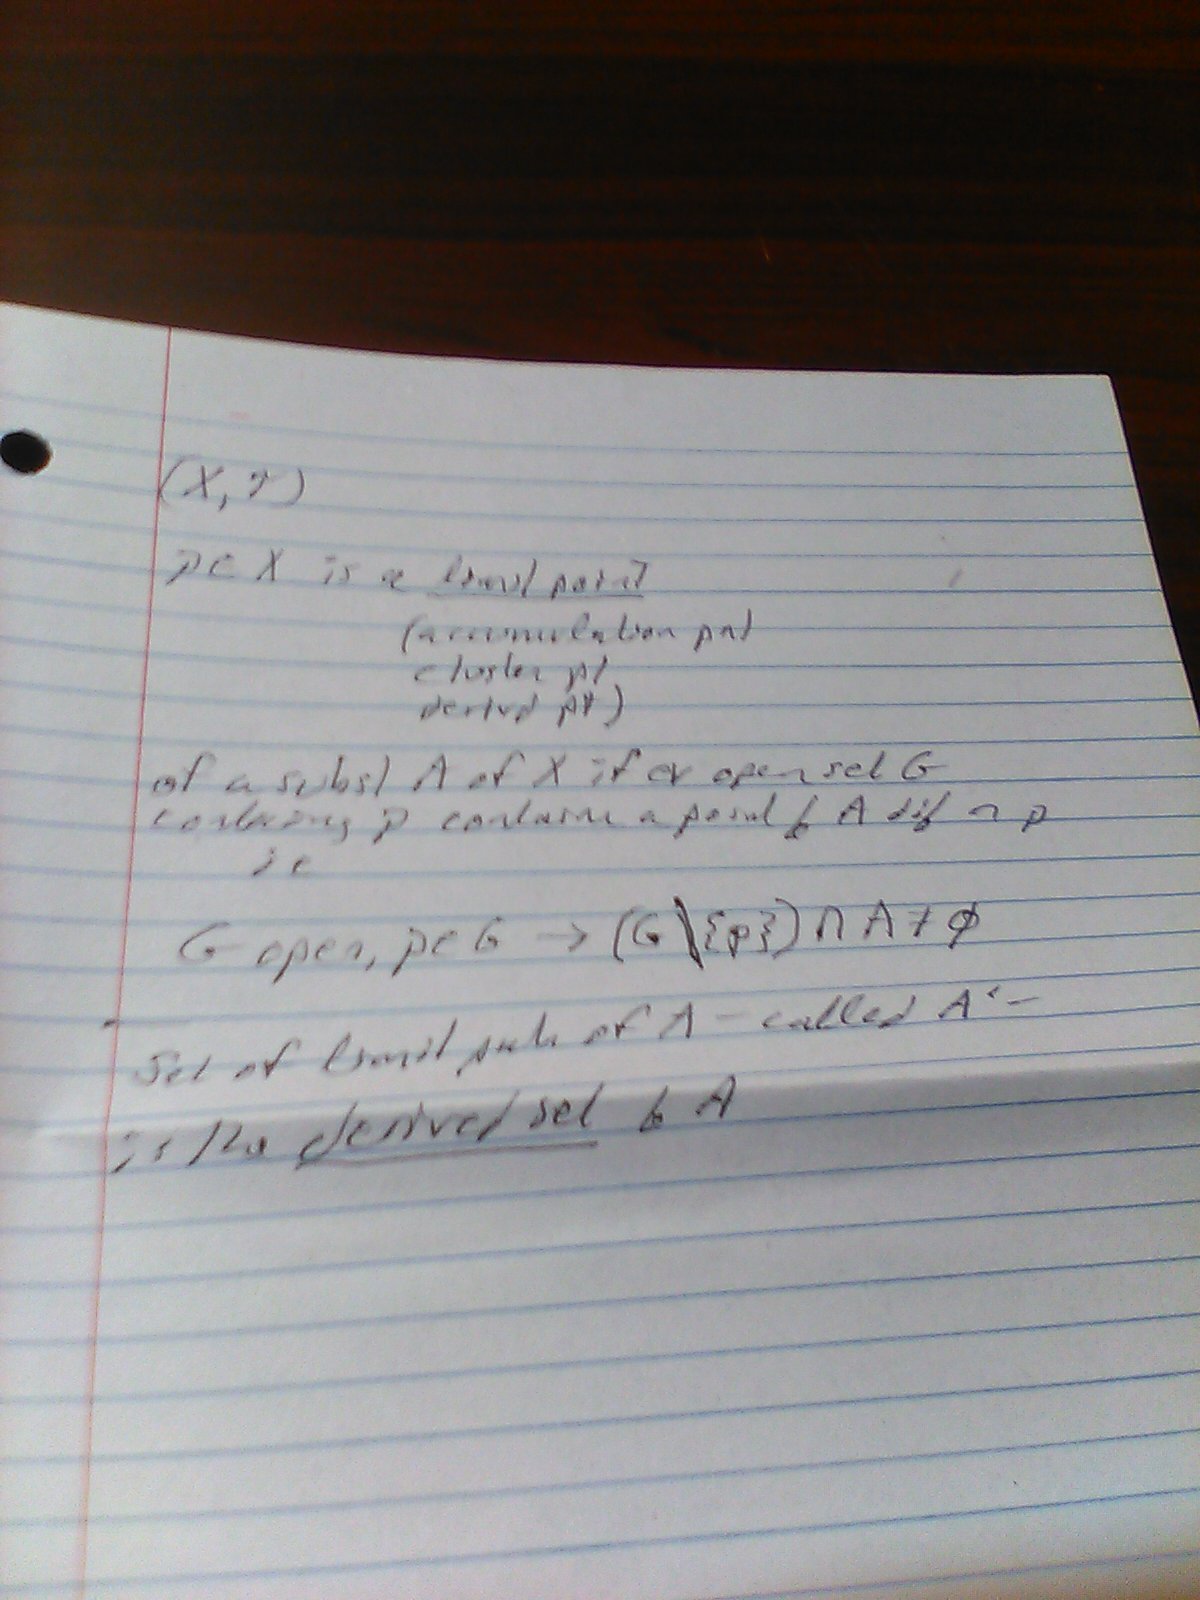 (X, τ)
p ∈ X is a limit point
(accumulation pnt
cluster pt
derivd pt)
of a subst A of X if ev open set G
containing p contains a point of A dif p
ie
G open, p ∈ G → (G \ {p}) ∩ A ≠ ∅
Set of limit pnts of A - called A' -
is the derived set of A